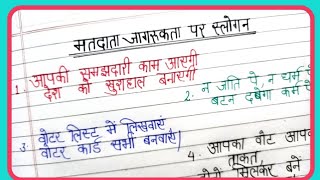 मतदाता जागरूकता पर स्लोगन
1. आपकी समझदारी काम आएगी
देश को खुशहाल बनाएगी
2. न जाति पे न धर्म
बटन दबेगा कर्म
3. वोटर लिस्ट में लिखवाएं
वोटर कार्ड सभी बनवाएं।
4. आपका वोट आप
ताकत,
मिलकर बने